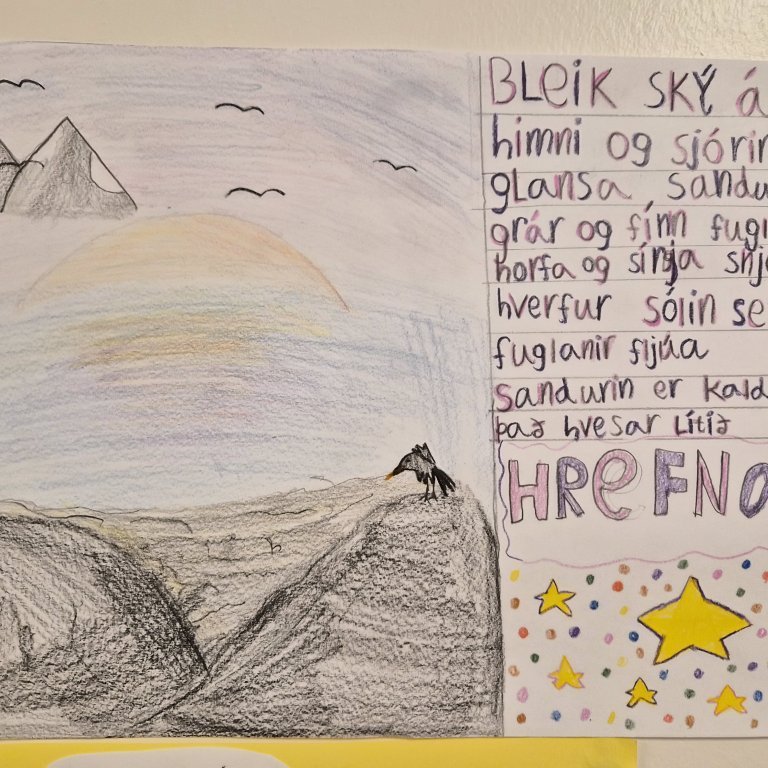 BLEIK SKÝ á
himni og sjórin
glansa sandu
grár og fínn fugl
horfa og sinja snj
hverfur sólin se
fuglanir fljúa
sandurin er kald
það hvesar lítið
HREFNA